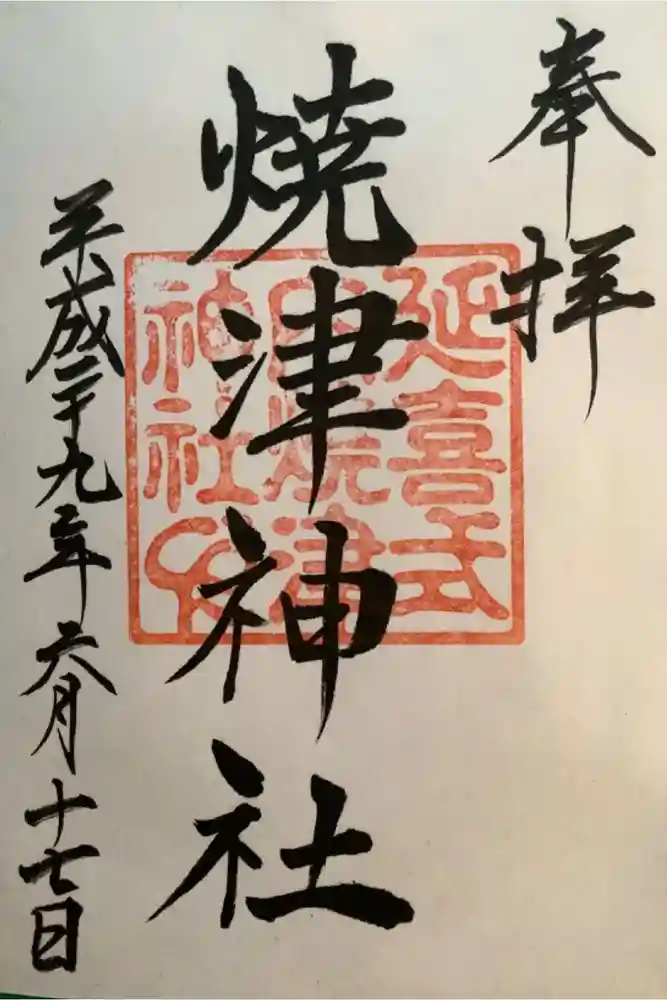 奉拝
延喜式
焼津神社
神社
平成二十九年六月十七日